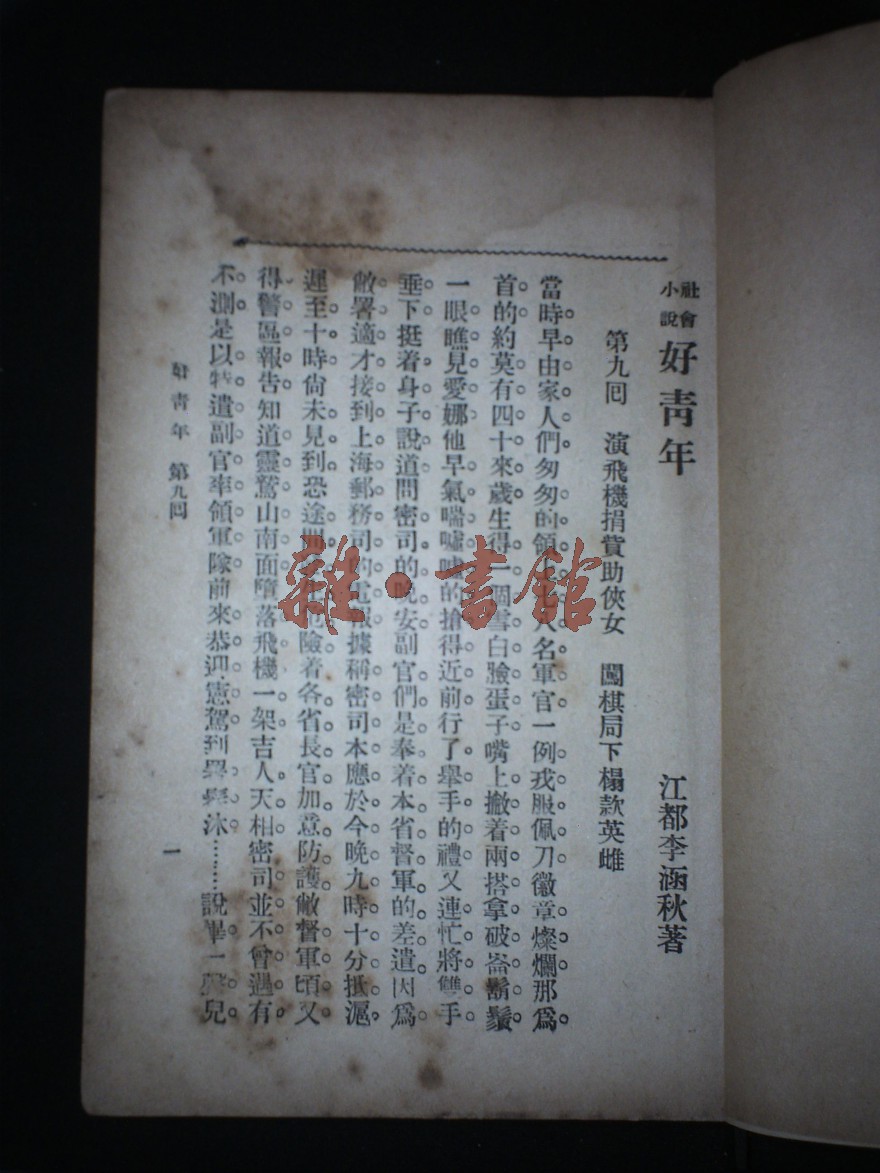 社會小說 好青年 江都李涵秋著
第九囘 演飛機捐貲助俠女 闖棋局下榻款英雌
當時早由家人們匆匆的領 名軍官一例戎服佩刀徽章燦爛那爲
首的約莫有四十來歲生得一個雪白臉蛋子嘴上撇着兩搭拿破崙鬍鬚
一眼瞧見愛娜他早氣喘噓噓的搶得近前行了舉手的禮又連忙將雙手
垂下挺着身子說道問密司的晚安副官們是奉着本省督軍的差遣因爲
敝署適才接到上海郵務司的電報據稱密司本應於今晚九時十分抵滬
遲至十時尙未見到恐途間 險着各省長官加意防護敝督軍頃又
得警區報告知道靈鷲山南面墮落飛機一架吉人天相密司並不曾遇有
不測是以特遣副官率領軍隊前來恭迎憲駕到 沐………說畢一 兒
好青年 第九囘
一
雜·書館